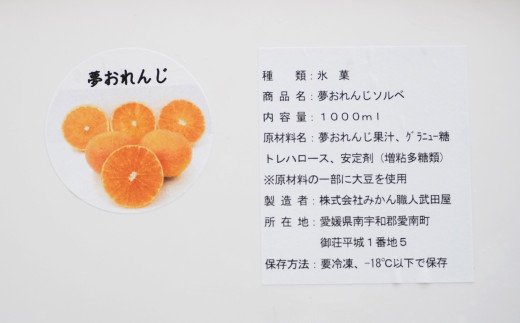 夢おれんじ
種　　類：氷　菓
商 品 名：夢おれんじソルベ
内 容 量：１０００ｍｌ
原材料名：夢おれんじ果汁、ｸﾞﾗﾆｭｰ糖
トレハロース、安定剤（増粘多糖類）
※原材料の一部に大豆を使用
製 造 者：株式会社みかん職人武田屋
所 在 地：愛媛県南宇和郡愛南町
御荘平城１番地５
保存方法：要冷凍、-18℃以下で保存